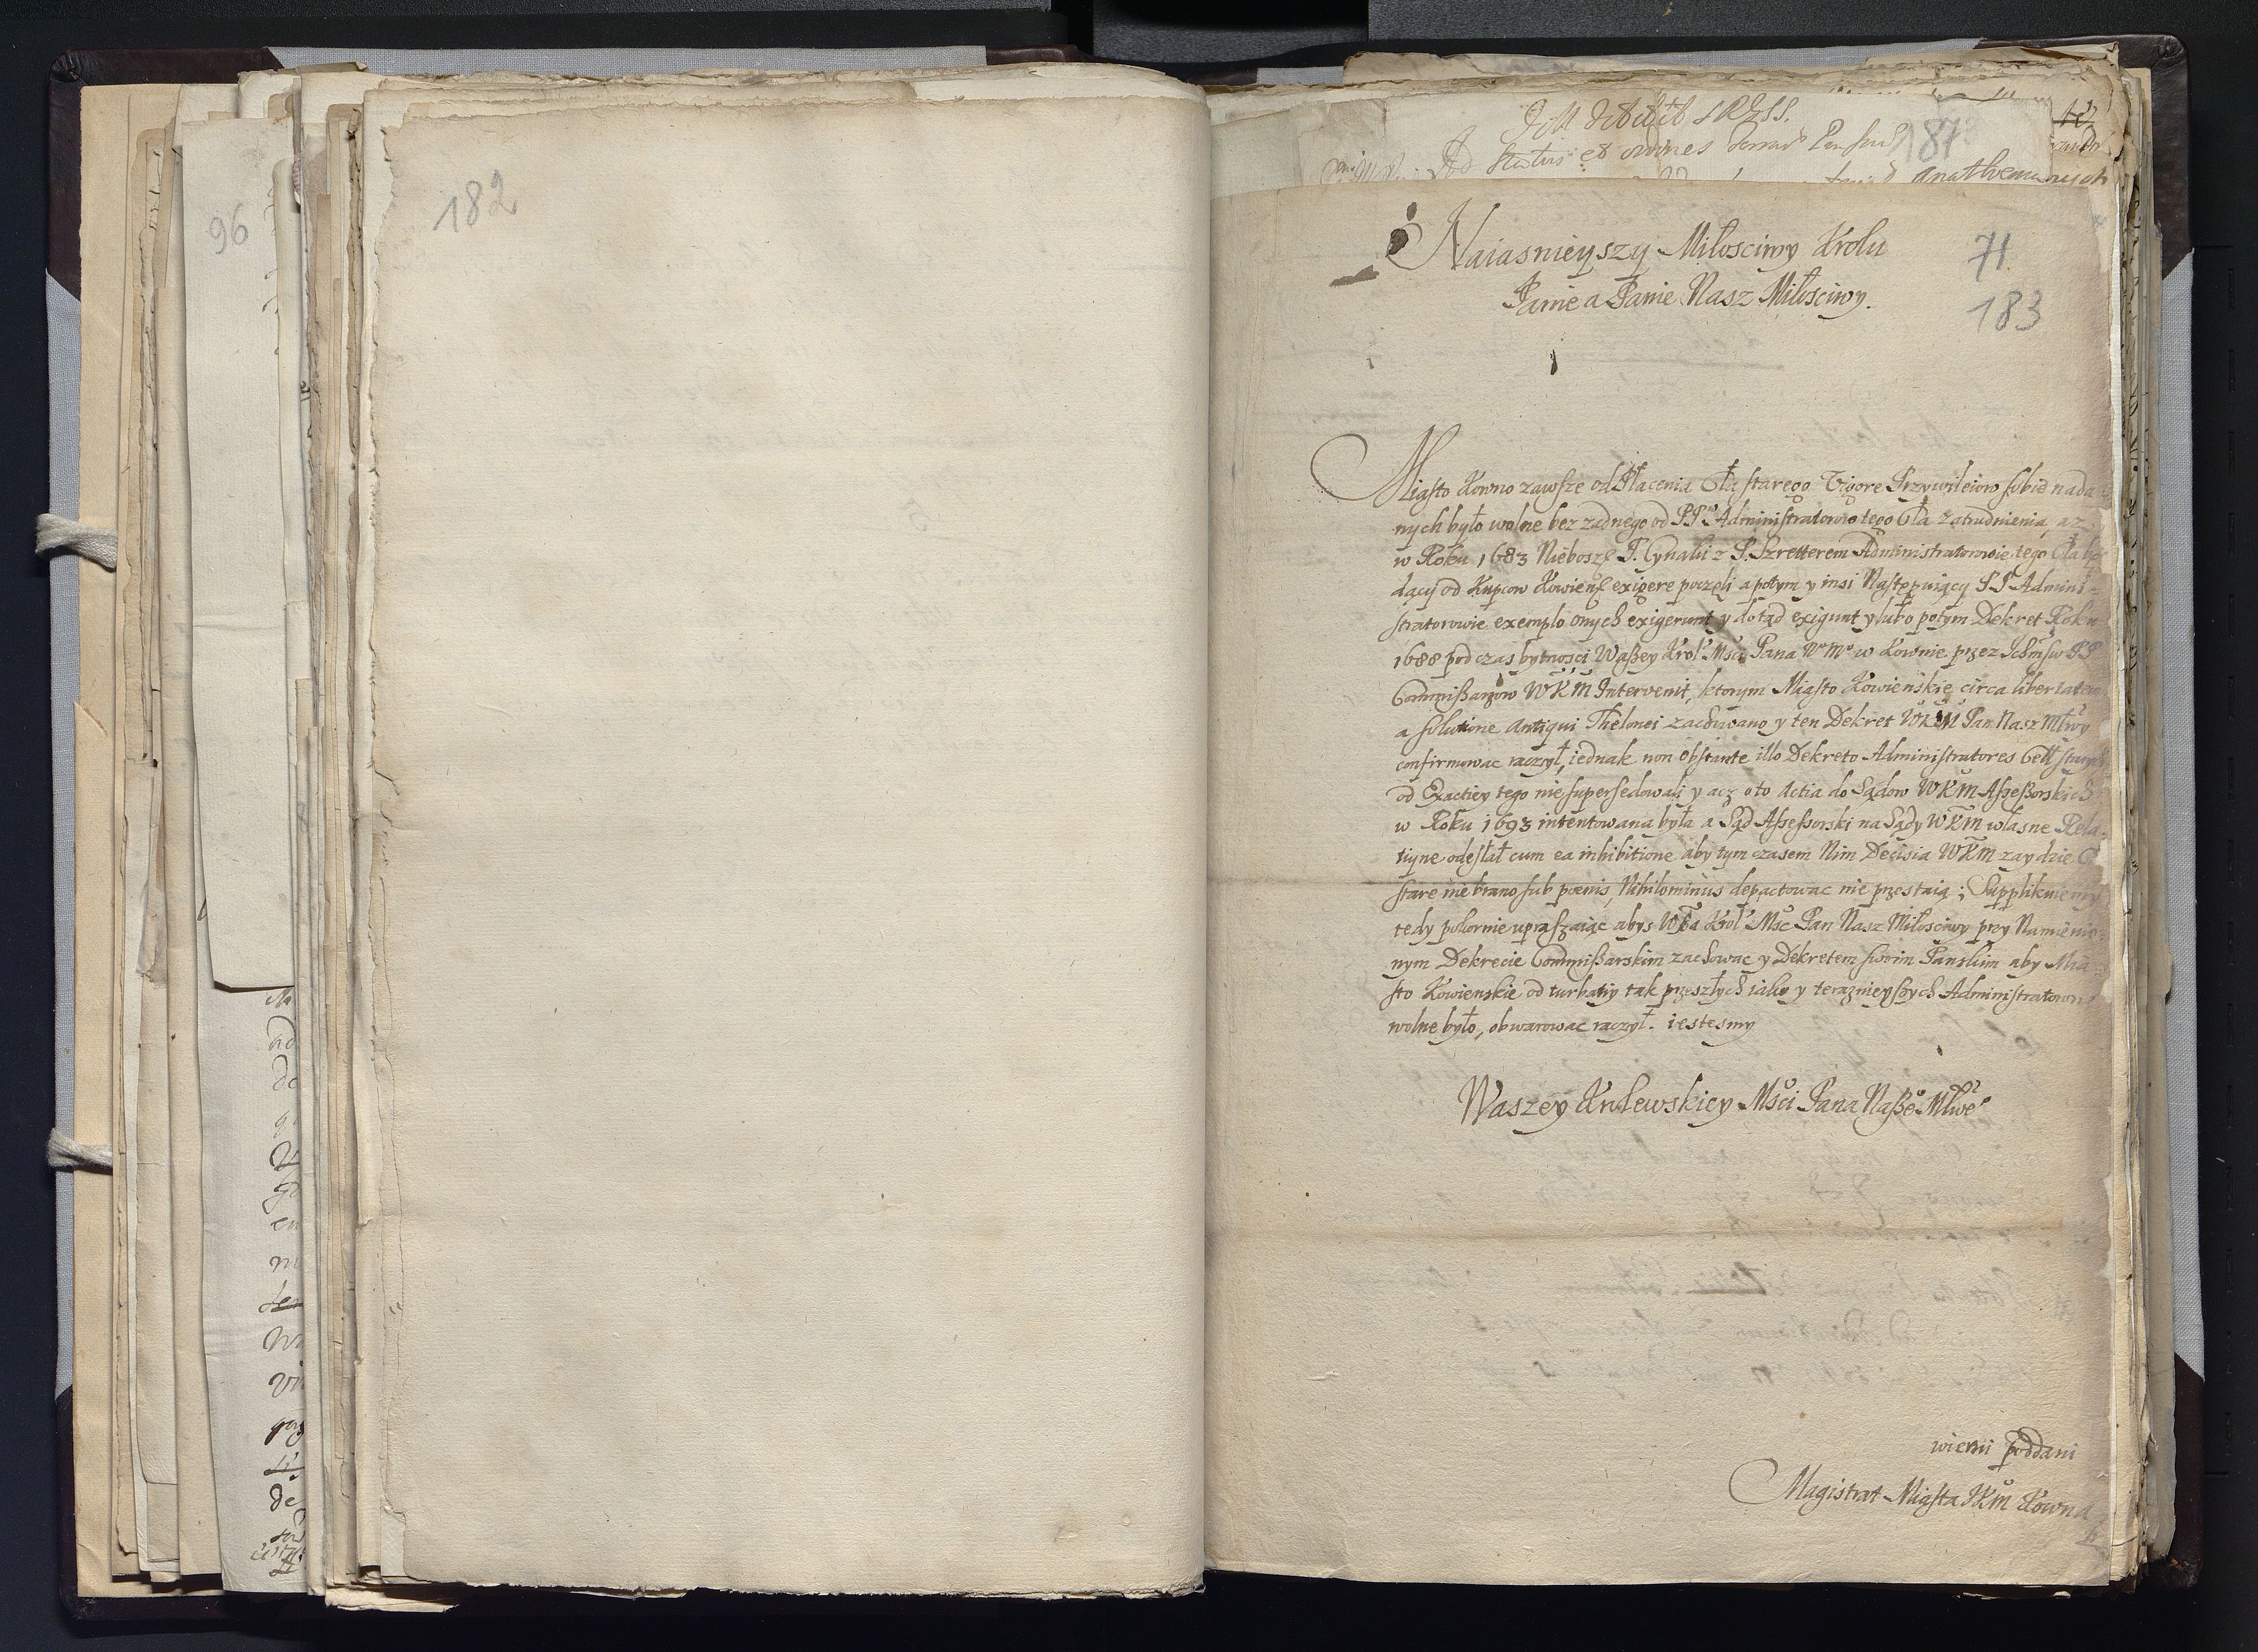 96
182
187
Naiasnieyszy Miłosciwy Krolu
71
Panie a Panie Nasz Miłosciwy.
183
Miasto Kowno zawsze od Płacenia Cła starego Vigore Przywileiow sobie nada
nych było wolne bez zadnego od PPw Administratorow tego Cła zatrudnienia, az
w Roku 1683 Niebosz P. Cynaki z P. Szretterem Administratorowie tego Cła bę
dący od Kupcow Kowiens exigere poczęli a potym y insi Następuiący PP Admini-
stratorowie exemplo onych exigerunt y dotąd exigunt y lubo potym Dekret Roku
1688 pod czas bytnosci Waszey Krol Msci Pana No Mo w Kownie przez PP
Commissarzow WKM Intervenit, ktorym Miasto Kowienskie circa libertatem
a solutione Antiqui Thelonei zachowano y ten Dekret WKM Pan Nasz Młwy
confirmowac raczył, iednak non obstante illo Dekreto Administratores Cełł starych
od Exactiey tego nie supersedowali y acz o to Actia do Sądow WKM Assessorskich
w Roku 1693 intentowana była a Sąd Assessorski na Sądy WKM własne Rela-
tiyne odesłał cum ea inhibitione aby tym czasem Nim Decisia WKM zaydzie
stare nie brano sub poenis, Nihilominus depactowac nie przestaią; Supplikuiemy
tedy pokornie upraszaiąc abys WKa Krol Msc Pan Nasz Miłosciwy przy Namienio-
nym Dekrecie Commissarskim zachowac y Dekretem swoim Panskim aby Mia-
sto Kowienskie od turbatiy tak przeszłych iako y teraznieyszych Administratorow
wolne było, obwarowac raczył. iestesmy
Waszey Krolewskiey Msci Pana Naszeo Młweo
wierni poddani
Magistrat Miasta JKM Kowna